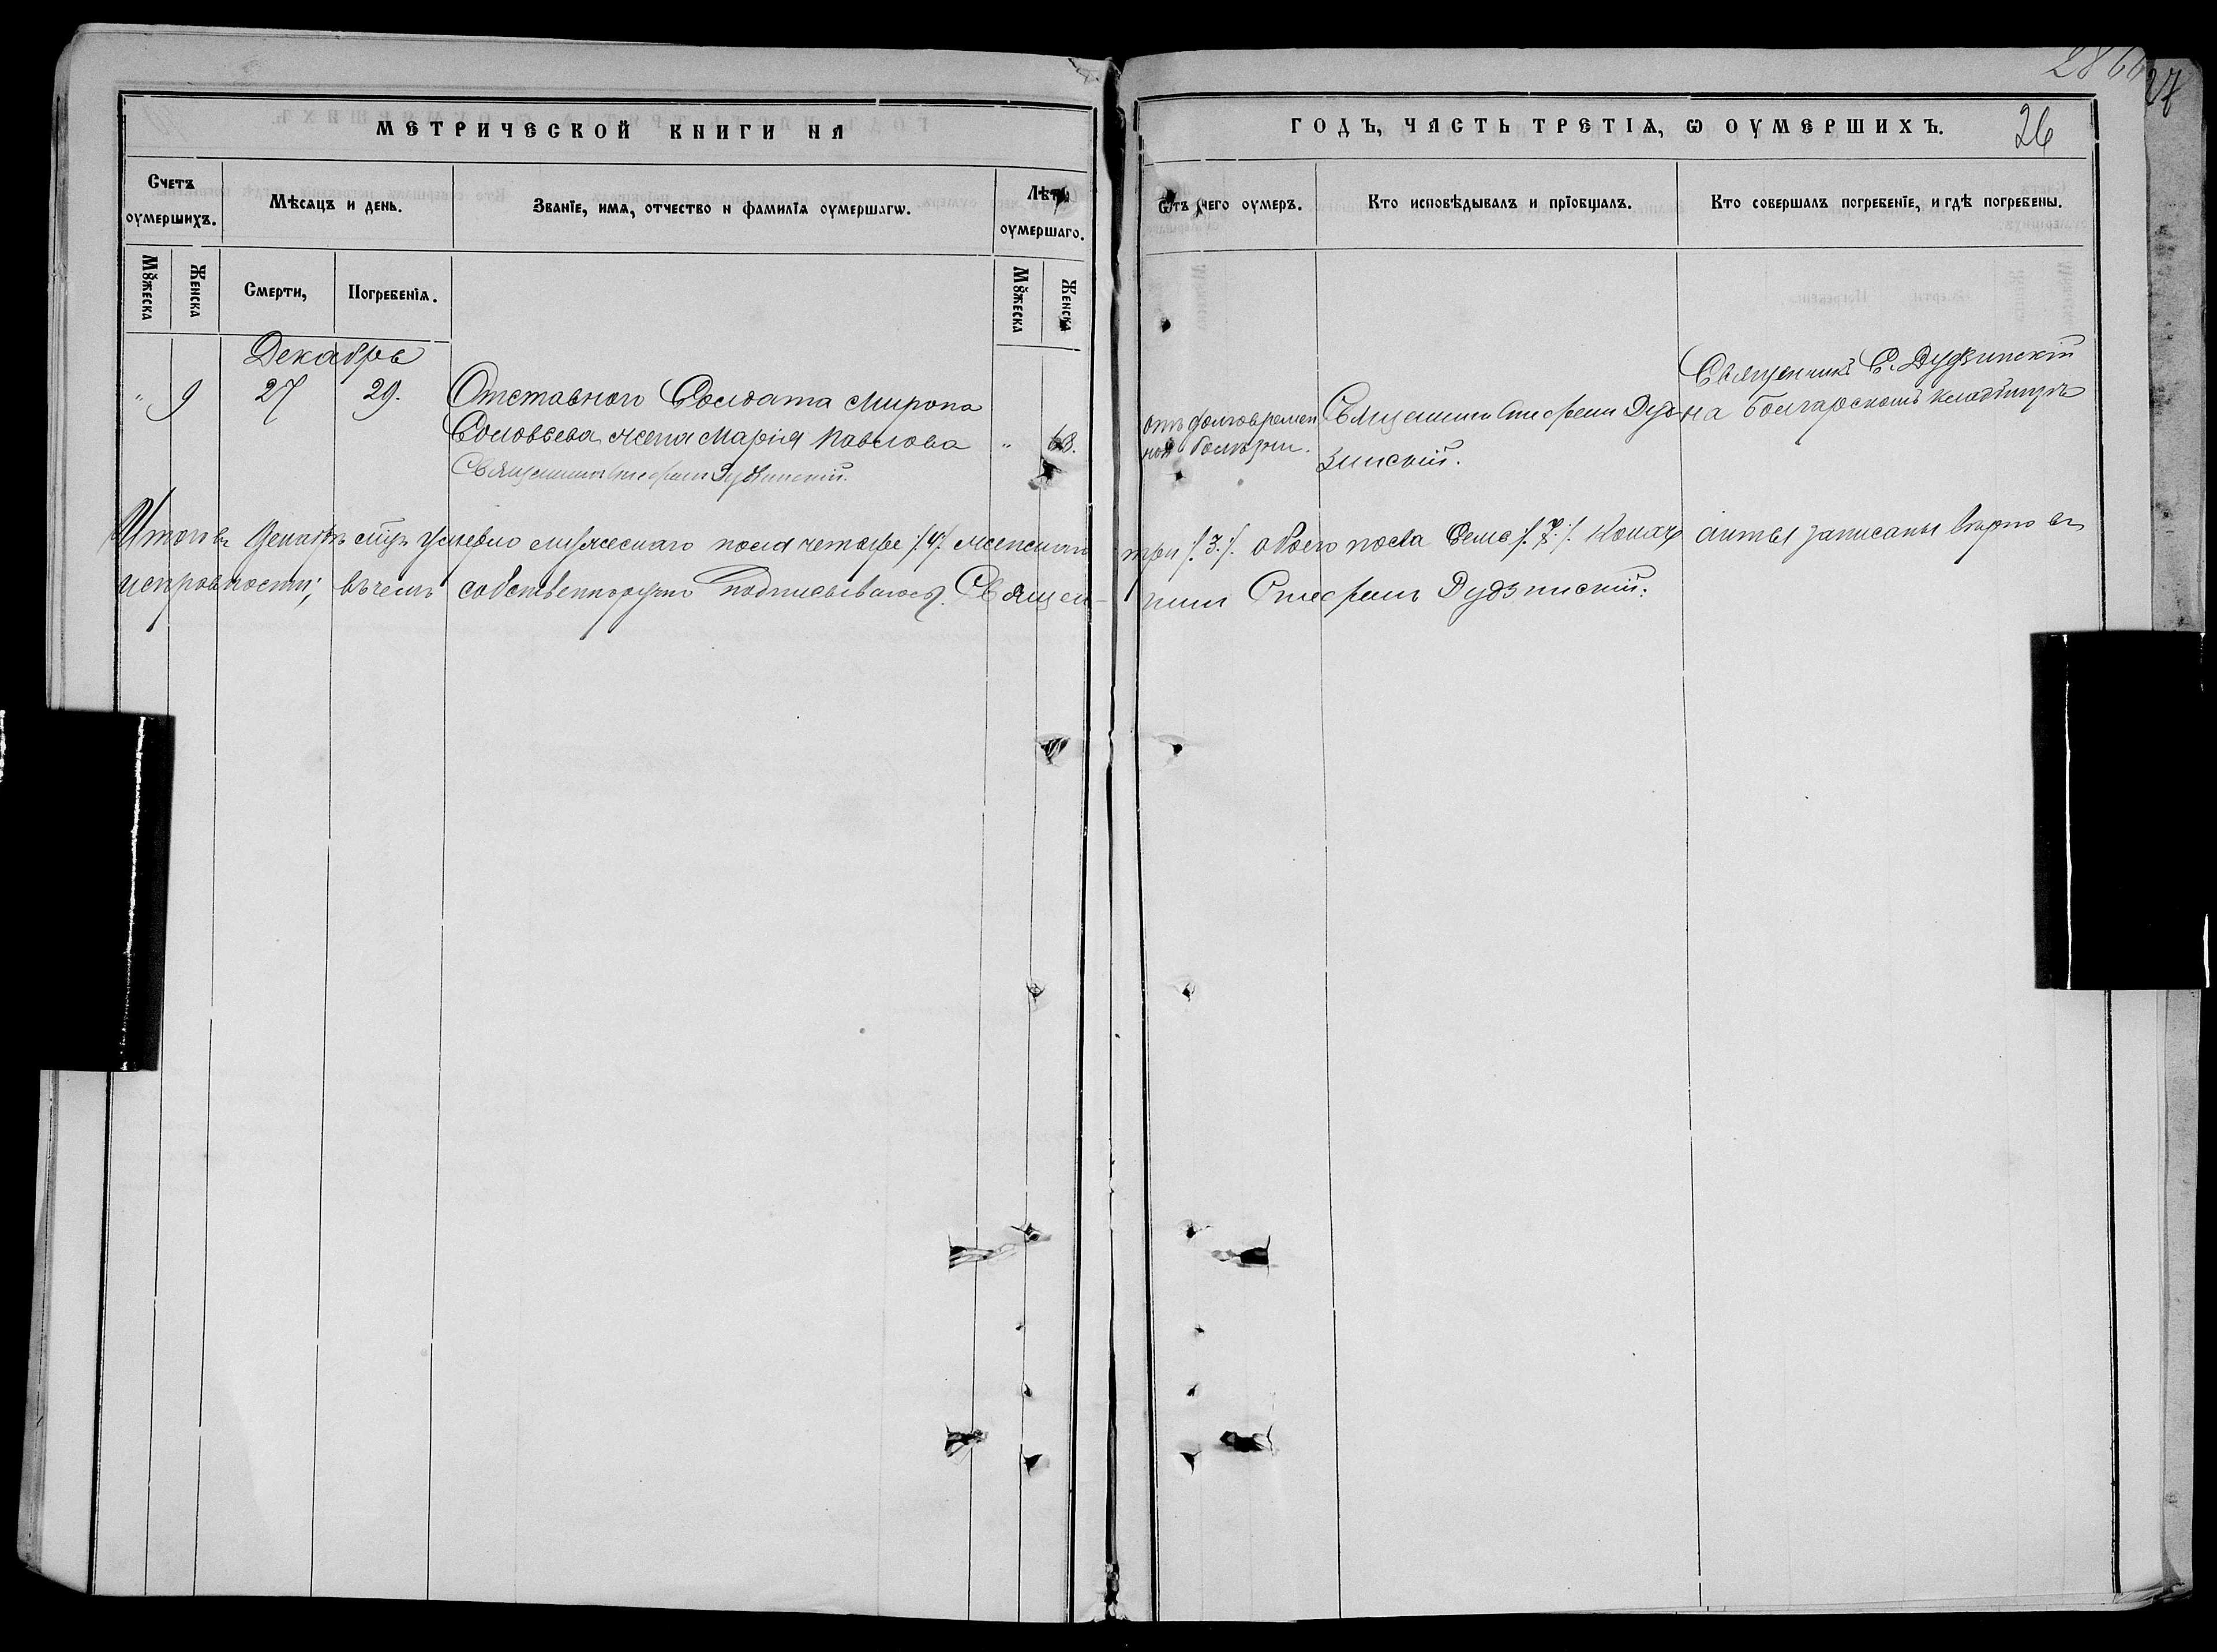 286
27
МЕТРИЧЕСКОЙ КНИГИ НА
ГОДЪ, ЧАСТЬ ТРЕТІѦ, Ѡ ОУМЕРШИХЪ.
26
Счетъ оумершихъ.
Мѣсяцъ и день.
Званіе, имѧ, отчество и фамиліѧ оумершагѡ.
Лѣта оумершаго.
Ѿтъ чего оумеръ.
Кто исповѣдывалъ и пріобщалъ.
Кто совершалъ погребеніе, и гдѣ погребены.
Мꙋжеска
Женска
Смерти,
Погребеніѧ.
Мꙋжеска
Женска
Декабрь
" 9 27 29.
Отставного Солдата Мирона
Соловьева жена Марія Павлова " 68.
Священникъ Стефанъ Дудзинскій.
отъ долговремен
ной болѣзни.
Священникъ Стефанъ Дуд-
зинскій.
Священникъ С. Дудзинскій
на Болгарскомъ кладбищѣ
Итого въ Декабрѣ мцѣ умерло мужескаго пола четыре /.4./ женскаго три /.3./. обоего пола Семь /.7./. Коихъ акты записаны вѣрно въ
исправности; въ чемъ собственноручно подписываюсь. Священ-
никъ Стефанъ Дудзинскій.